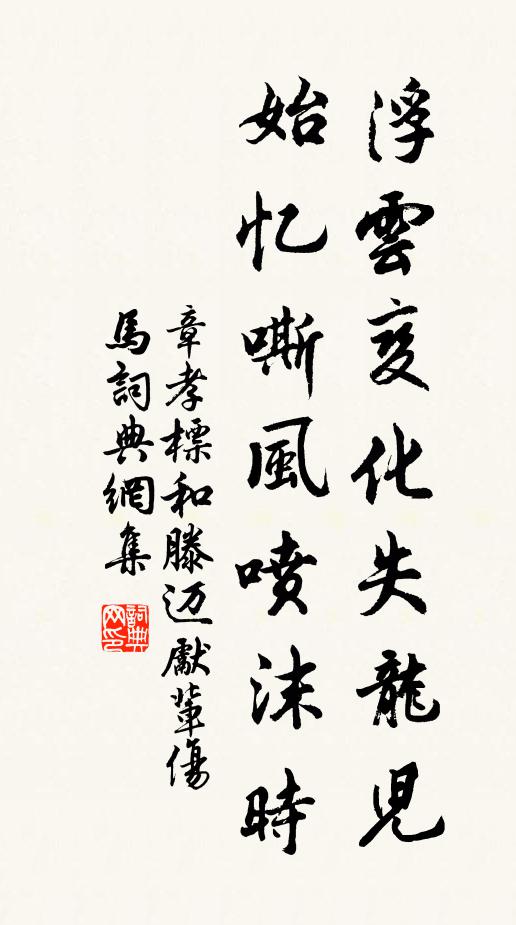 浮雲变化失龍児
始忆嘶風喷沫時
章孝標和滕迈獻輩傷
馬詞典網集
詞典网印